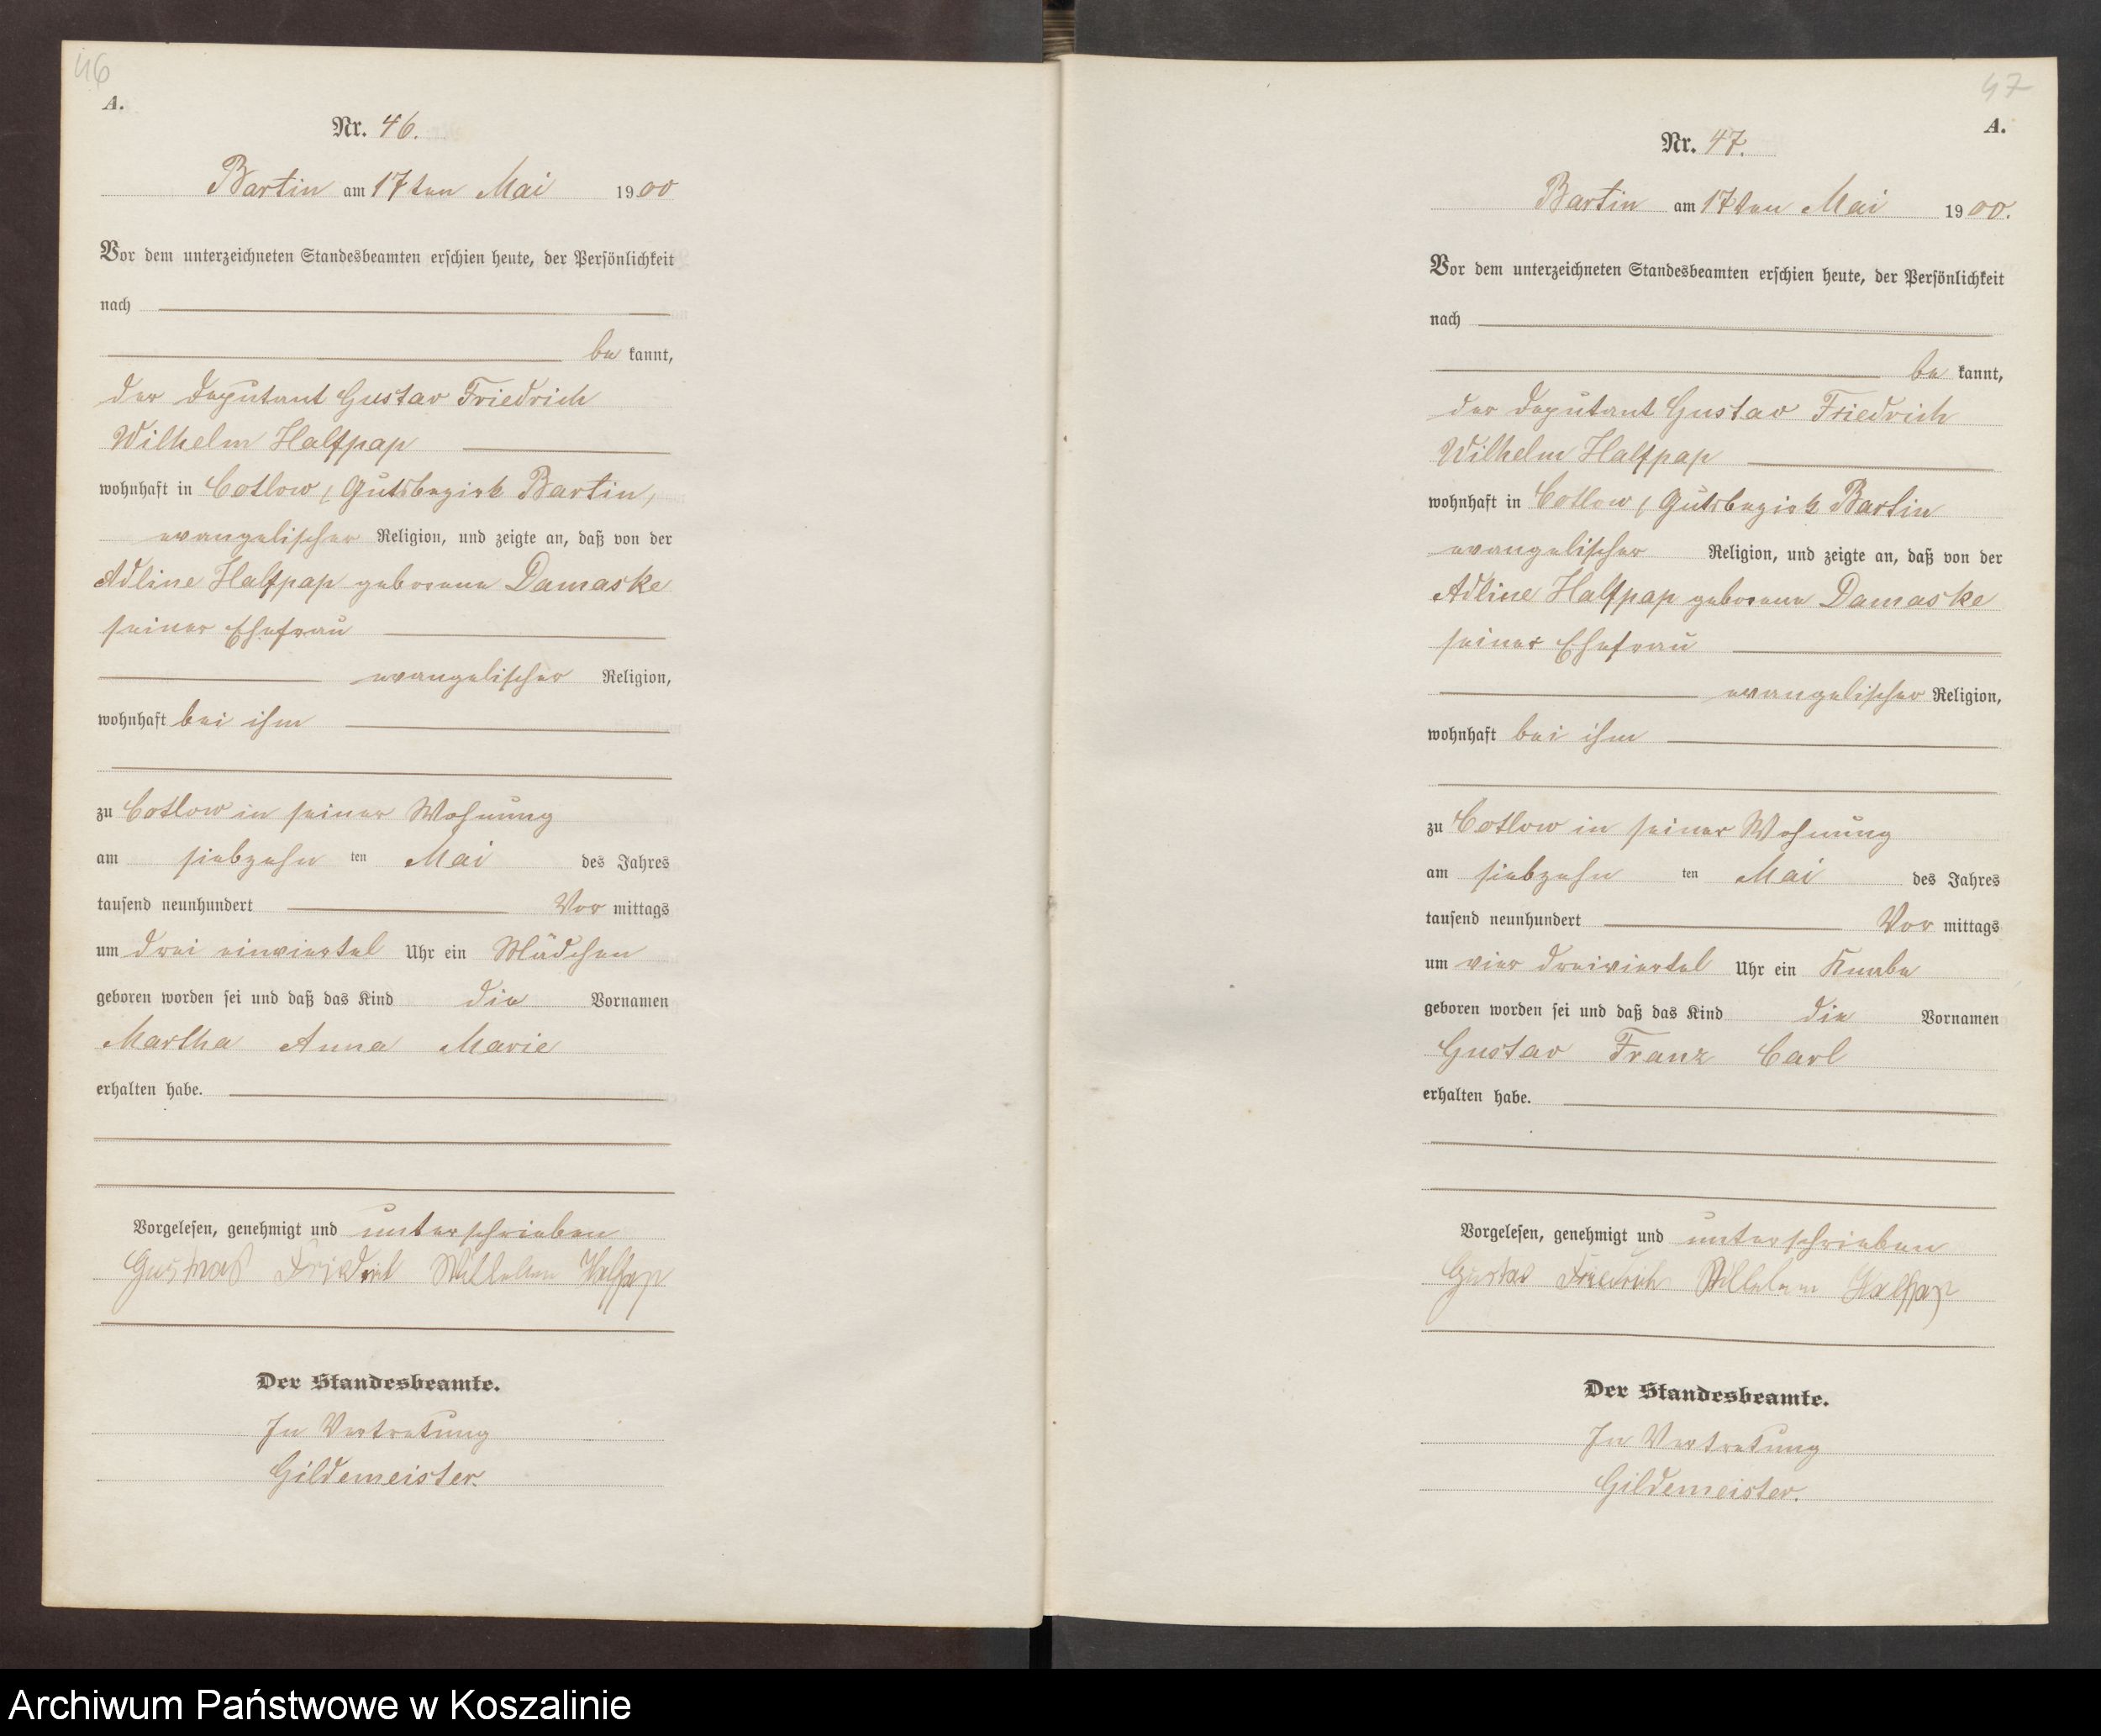 46
A.
Nr. 46.
Bartin am 17ten Mai 1900
Vor dem unterzeichneten Standesbeamten erschien heute, der Persönlichkeit
nach
be kannt,
der Deputant Gustav Friedrich
Wilhelm Halfpap
wohnhaft in Cotlow, Gutsbezirk Bartin,
evangelischer Religion, und zeigte an, daß von der
Adline Halfpap geborene Damaske
seiner Ehefrau
evangelischer Religion,
wohnhaft bei ihm
zu Cotlow in seiner Wohnung
am siebzehn ten Mai des Jahres
tausend neunhundert Vor mittags
um drei einviertel Uhr ein Mädchen
geboren worden sei und daß das Kind die Vornamen
Martha Anna Marie
erhalten habe.
Vorgelesen, genehmigt und unterschrieben
Wilhelm Halfpap
Der Standesbeamte.
In Vertretung
Gildemeister.
47
A.
Nr. 47.
Bartin am 17ten Mai 1900.
Vor dem unterzeichneten Standesbeamten erschien heute, der Persönlichkeit
nach
be kannt,
der Deputant Gustav Friedrich
Wilhelm Halfpap
wohnhaft in Cotlow, Gutsbezirk Bartin
evangelischer Religion, und zeigte an, daß von der
Adline Halfpap geborene Damaske
seiner Ehefrau
evangelischer Religion,
wohnhaft bei ihm
zu Cotlow in seiner Wohnung
am siebzehn ten Mai des Jahres
tausend neunhundert Vor mittags
um vier dreiviertel Uhr ein Knabe
geboren worden sei und daß das Kind die Vornamen
Gustav Franz Carl
erhalten habe.
Vorgelesen, genehmigt und unterschrieben
Gustav Friedrich Wilhelm Halfpap
Der Standesbeamte.
In Vertretung
Gildemeister.
Archiwum Państwowe w Koszalinie